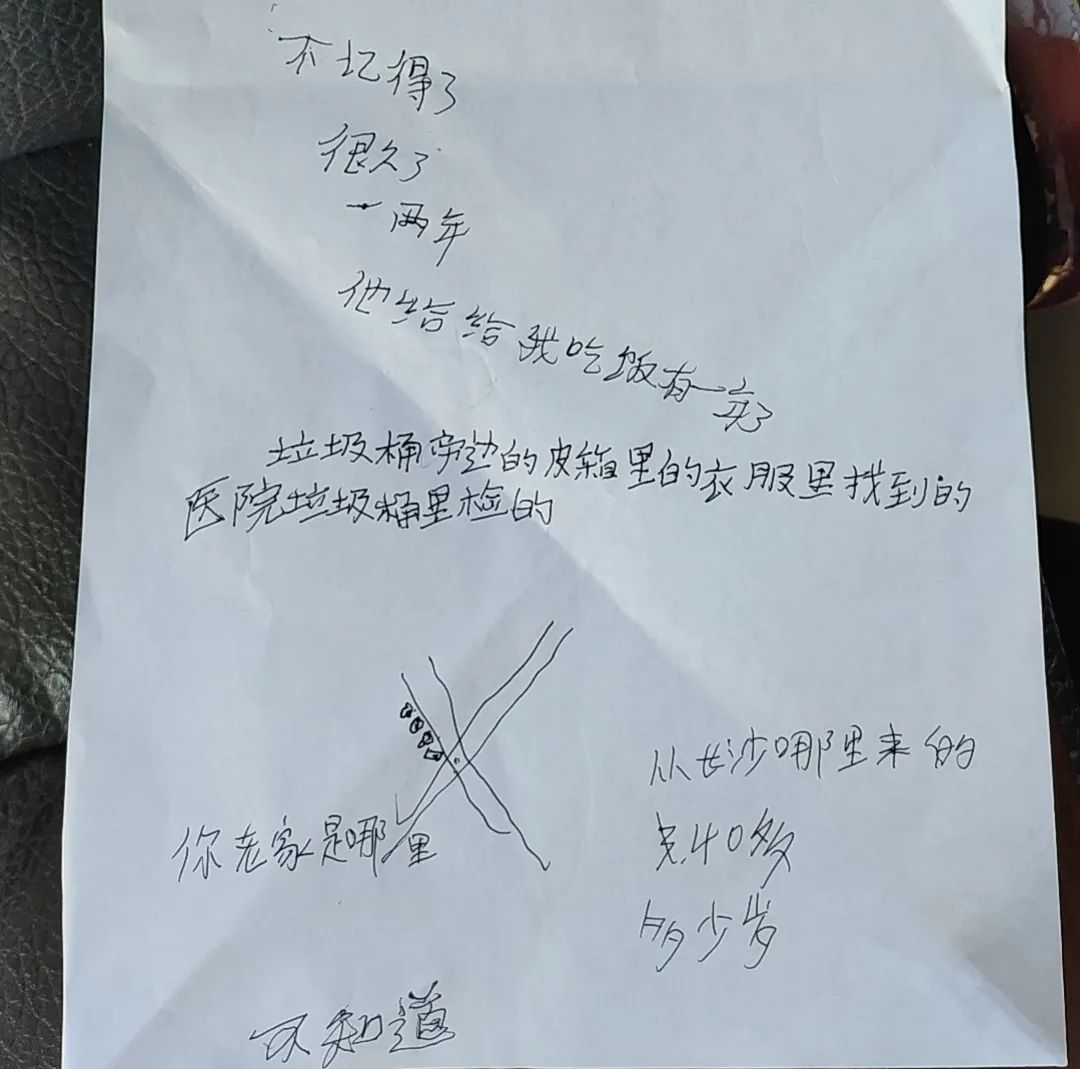 不记得了
很久了
一两年
他给给我吃饭有一
垃圾桶旁边的皮箱里的衣服里找到的
医院垃圾桶里检的
从长沙哪里来的
你老家是哪里
40多
多少岁
不知道